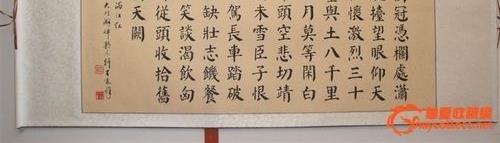 冠憑欄處瀟
擡望眼仰天
懷激烈三十
與土八千里
月莫等閑白
頭空悲切靖
未雪臣子恨
駕長車踏破
缺壯志饑餐
笑談渴飲匈
從頭收拾舊
天闕
滿江紅
华夏收藏网
mycollect.net